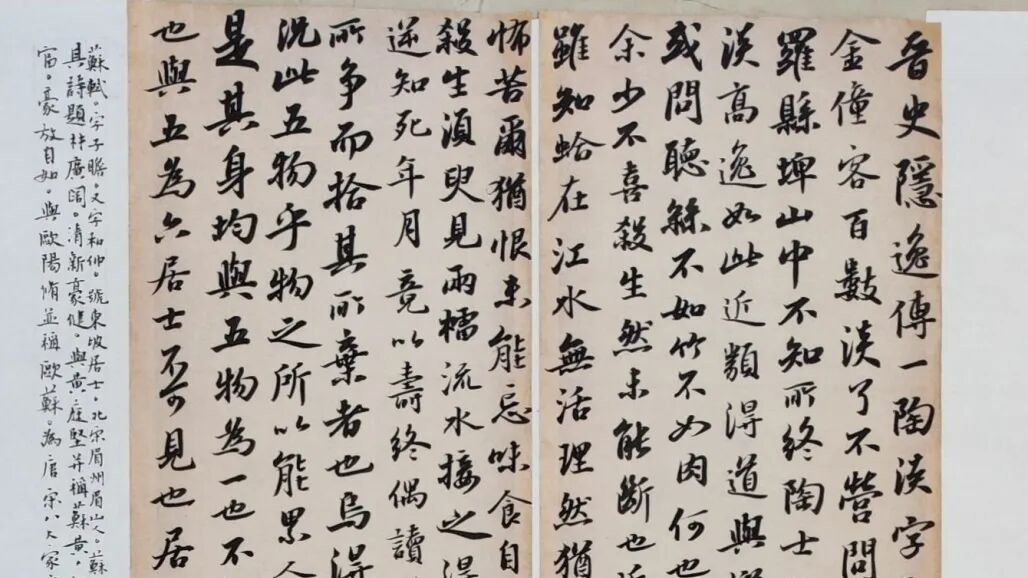 晋史隱逸傳一陶淡字
金僮客百數淡了不營問
羅縣埤山中不知所終陶士
淡高逸如此近類得道與
或問聽絲不如竹不如肉何也
余少不喜殺生然未能斷也
雖知蛤在江水無活理然猶
怖苦爾猶恨未能忘味食自
殺生須臾見兩檐流水接之得
逆知死年月竟以壽終偶讀
所争而拾其所棄者也烏得
況此五物乎物之所以能累人
是其身均與五物為一也不
也與五為六居士不可見也居
蘇軾。字子瞻。又字和仲。號東坡居士。北宋眉州眉山人。蘇
其詩題材廣闊。清新豪健。與黄庭堅并稱蘇黄。
富。豪放自如。與歐陽脩並稱歐蘇。為唐宋八大家